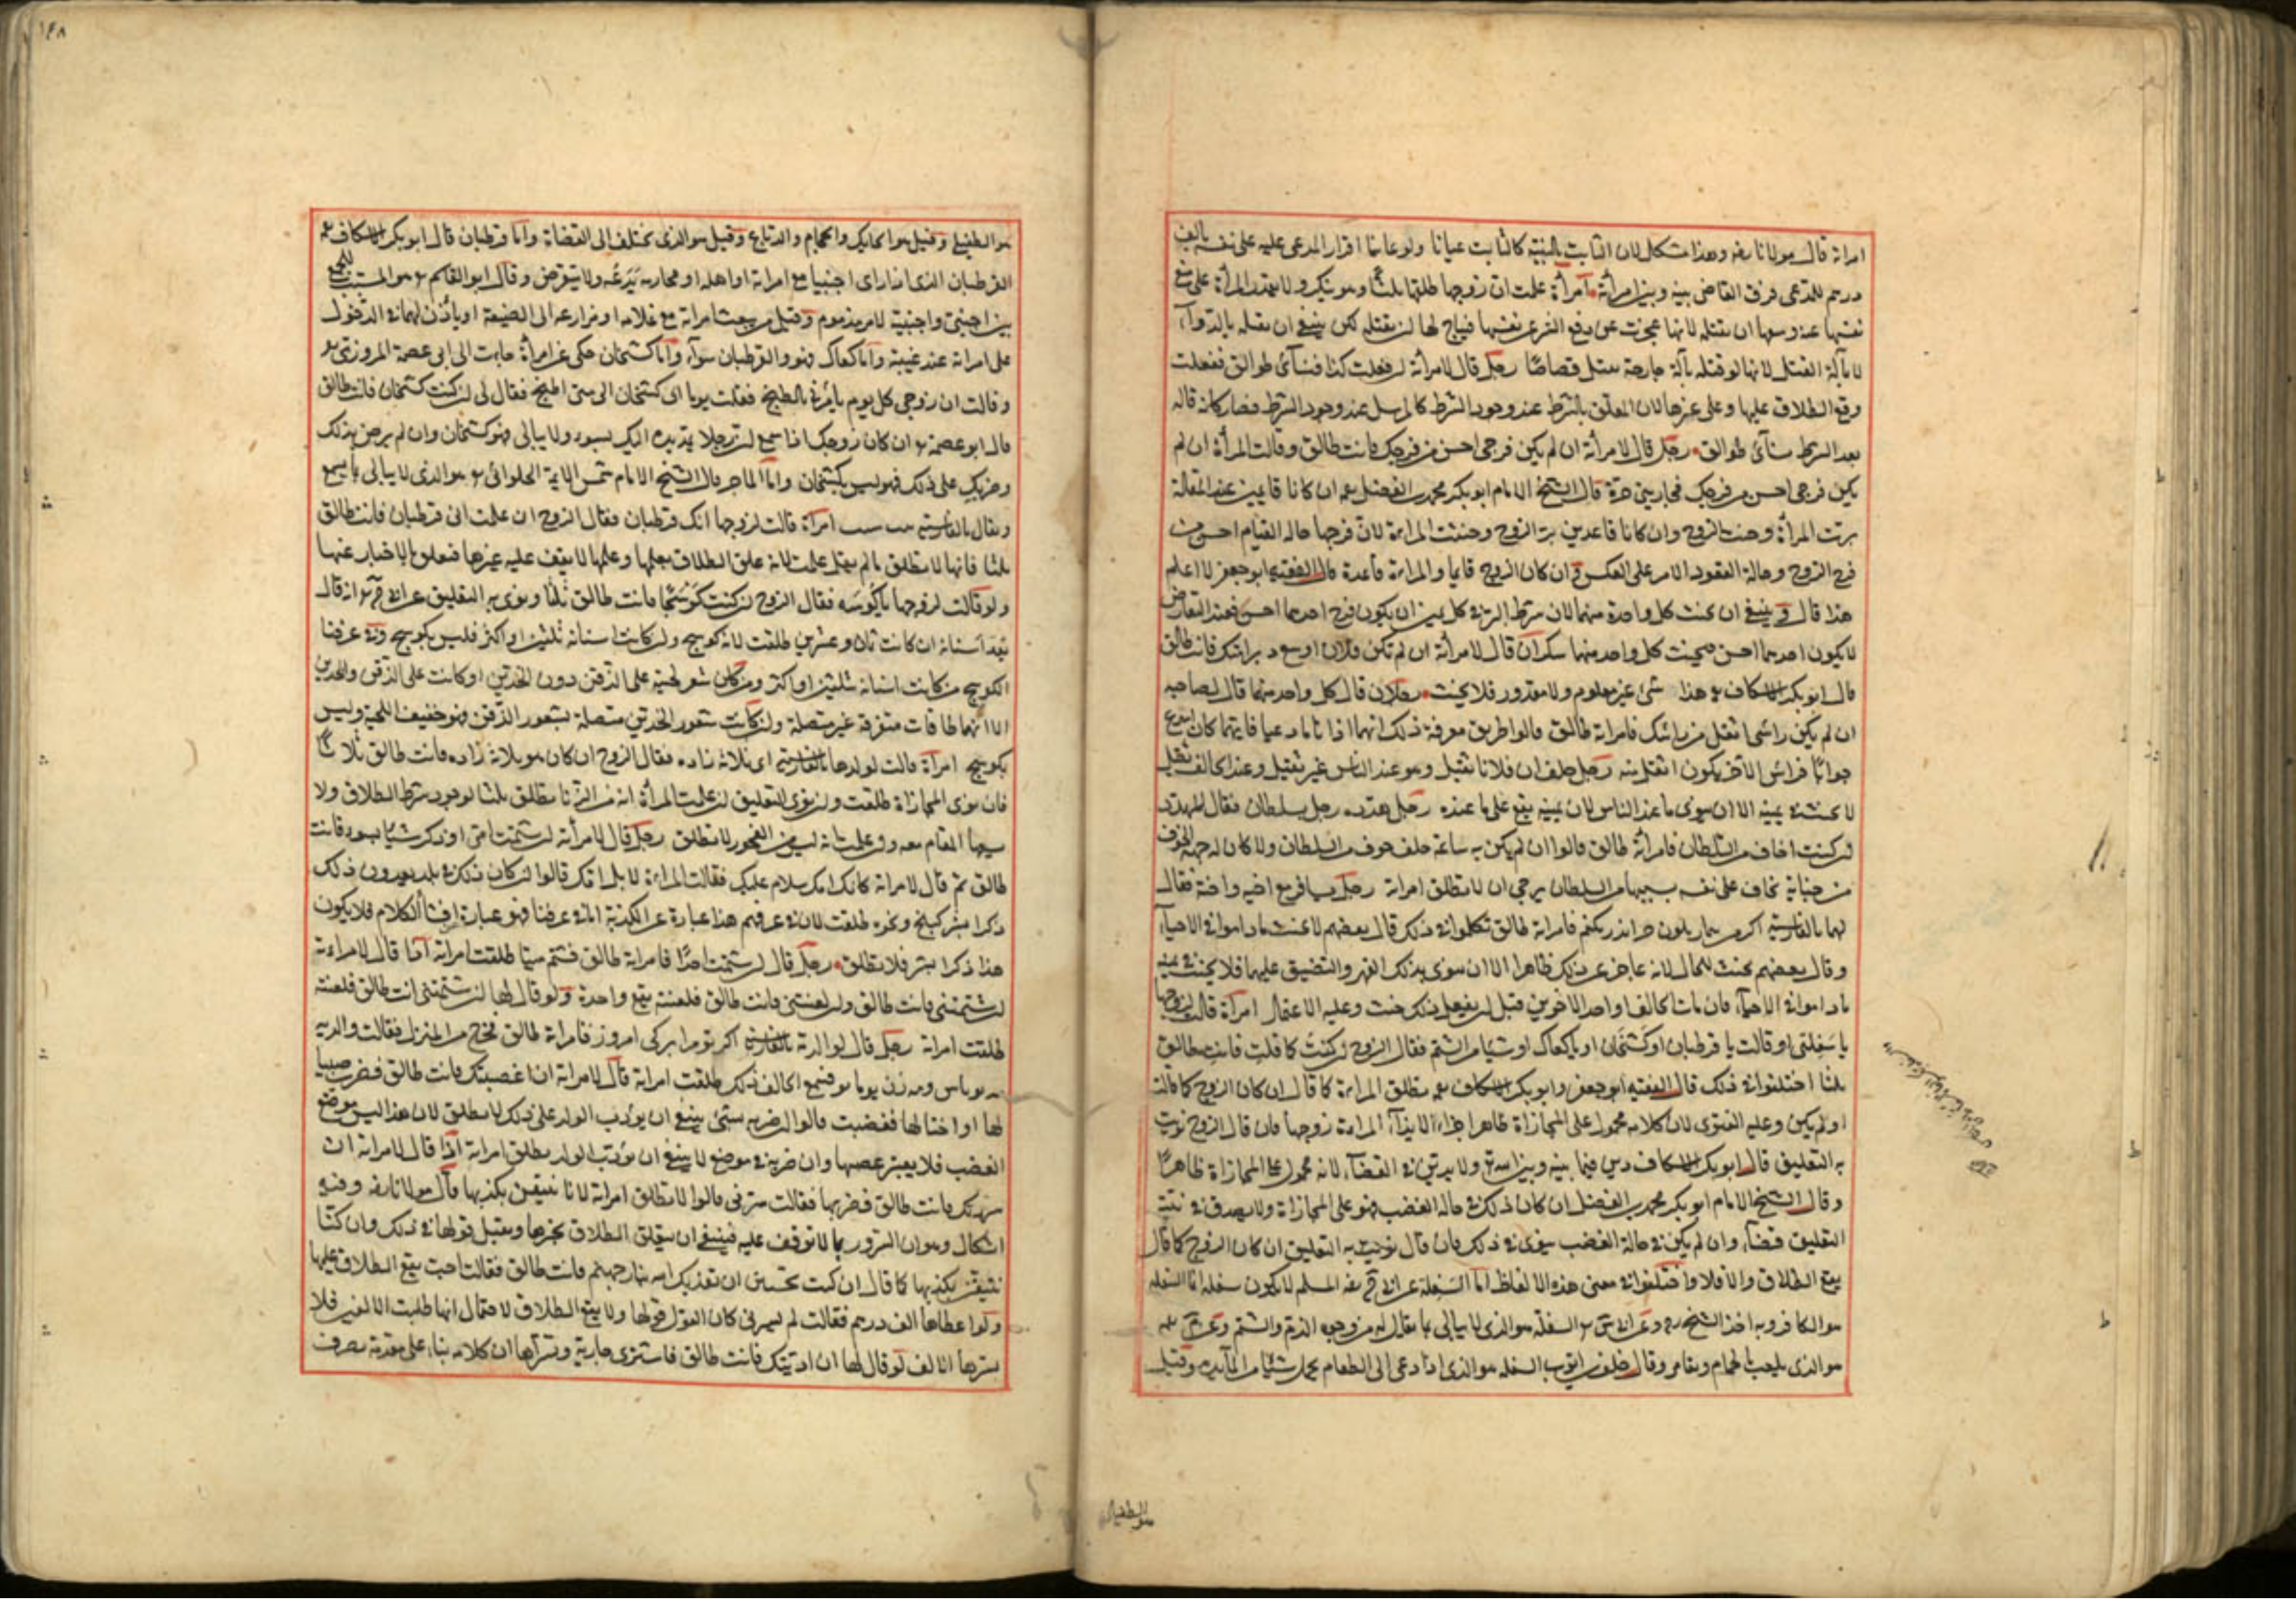 امراته قال مولانا رضه وهذا مشكل لان الثابت بالبينة كالثابت عيانا ولو عاينا اقرار المدعى عليه على نفسه بالف
درهم للمدعى فرق القاضى بينه وبين امرأته امرأة علمت ان زوجها طلقها ثلثا وهو ينكر ولا تقدر المرأة على منع
نفسها عنه وسعها ان تقتله لانها عجزت عن دفع الشر عن نفسها فيباح لها ان تقتله لكن ينبغى ان تقتله بالدواء
لا بآلة القتل لانها لو قتلته بآلة جارحة تقتل قصاصا رجل قال لامرأته ان فعلت كذا فنسائى طوالق ففعلت
وقع الطلاق عليها وعلى غيرها لان المعلق بالشرط عند وجود الشرط كالمرسل عند وجود الشرط فصار كانه قال
بعد الشرط نسائى طوالق رجل قال لامرأته ان لم يكن فرجى احسن من فرجك فانت طالق وقالت المرأة ان لم
يكن فرجى احسن من فرجك فجاريتى حرة قال الشيخ الامام ابو بكر محمد بن الفضل ان كانا قائمين عند المقالة
برت المرأة وحنث الزوج وان كانا قاعدين بر الزوج وحنثت المراءة لان فرجها حالة القيام احسن من
فرج الزوج وحالة القعود الامر على العكس وان كان الزوج قايما والمراءة قاعدة قال الفقيه ابو جعفر لا اعلم
هذا قال وينبغى ان يحنث كل واحد منهما لان شرط البر فى كل يمين ان يكون فرج احدهما احسن فعند التعارض
لا يكون احدهما احسن فيحنث كل واحد منهما سكران قال لامرأته ان لم تكن فلان اوسع دبرا منك فانت طالق
قال ابو بكر الاسكاف هذا شئ غير معلوم ولا مقدور فلا يحنث رجلان قال كل واحد منهما قال لصاحبه
ان لم يكن راسى اثقل من راسك فامراته طالق قالوا طريق معرفة ذلك انهما اذا ناما دعيا فايهما كان اسرع
جوابا فراس الآخر يكون اثقل منه رجل حلف ان فلانا ثقيل وهو عند الناس غير ثقيل وعند الحالف ثقيل
لا يحنث فى يمينه الا ان ينوى ما عند الناس لان يمينه يقع على ما عنده رجل هدده رجل بسلطان فقال المهدد
ان كنت اخاف من السلطان فامرأته طالق قالوا ان لم يكن به ساعة حلف خوف من السلطان ولا كان له جهة الخوف
من جناية يخاف على نفسه بسببها من السلطان يرجى ان لا تطلق امراته رجل سافر مع اخيه واخته فقال
لهما بالفارسية فامراته طالق تكلموا فى ذلك قال بعضهم لا يحنث ما داموا فى الاحياء
وقال بعضهم يحنث للحال لانه عاجز عن ذلك ظاهرا الا ان ينوى بذلك القهر والتضييق عليهما فلا يحنث
ما داموا فى الاحياء فان مات الحالف او احد الاخوين قبل ان يفعل ذلك حنث وعليه الاعتماد امرأة قالت لزوجها
يا سفلتى او قالت يا قرطبان او كشخان او يا كعاك او شيئا من الشتم فقال الزوج ان كنت كما قلت فانت طالق
ثلثا اختلفوا فى ذلك قال الفقيه ابو جعفر وابو بكر الاسكاف تطلق المراءة كما قال ان كان الزوج كما قالت
او لم يكن وعليه الفتوى لان كلامه محمول على المجازاة ظاهرا جزاء لايذاء المراءة زوجها فان قال الزوج نويت
به التعليق قال ابو بكر الاسكاف دين فيما بينه وبين الله ولا يدين فى القضاء لانه محمول على المجازاة ظاهرا
وقال الشيخ الامام ابو بكر محمد بن الفضل ان كان ذلك فى حالة الغضب فهو على المجازاة ولا يصدق فى نية
التعليق قضاء وان لم يكن فى حالة الغضب ينوى فى ذلك فان قال نويت به التعليق ان كان الزوج كما قال
يقع الطلاق والا فلا واختلفوا فى معنى هذه الالفاظ اما السفلة عن ابى ح رضه المسلم لا يكون سفلة انما السفلة
هو الكافر وبه اخذ الشيخ السفلة هو الذى لا يبالى بما يقال له من وجوه الذم والشتم
هو الذى يلعب بالحمام ويقامر وقال خلف بن ايوب السفلة هو الذى اذا دعى الى الطعام يحمل شيئا من المائدة وقيل
هو الطفيلى
١٤٨
هو الطفيلى وقيل هو الحايك والحجام والدباغ وقيل هو الذى يختلف الى القضاة واما قرطبان قال ابو بكر الاسكاف
القرطبان الذى اذا راى اجنبيا مع امراته او اهله او محارمه يدعه ولا يتعرض وقال ابو القاسم هو المسبب للجمع
بين اجنبى واجنبية لامر مذموم وقيل من يبعث امراته مع غلامه او مزارعه الى الضيعة او ياذن لهما فى الدخول
على امراته عند غيبته واما كعاك فهو والقرطبان سواء واما كشخان حكى عن امرأة جاءت الى ابى عصمة المروزى
وقالت ان زوجى كل يوم يأتى بالطبخ فقلت يوما اى كشخان الى متى اطبخ فقال لى ان كنت كشخان فانت طالق
قال ابو عصمة ان كان زوجك اذا سمع ان رجلا يمد يده اليك بسوء ولا يبالى فهو كشخان وان لم يرض بذلك
وضربك على ذلك فهو ليس بكشخان واما الماجر قال الشيخ الامام شمس الايمة الحلوائى هو الذى لا يبالى بما يسمع
ويقال بالفارسية امرأة قالت لزوجها انك قرطبان فقال الزوج ان علمت انى قرطبان فانت طالق
ثلثا فانها لا تطلق ما لم يقل علمت لانه علق الطلاق بعلمها وعلمها لا يقف عليه غيرها فتعلق بالاخبار عنها
ولو قالت لزوجها يا كوسه فقال الزوج ان كنت كوسجا فانت طالق ثلثا ونوى به التعليق عن ابى ح انه قال
تعد اسنانه ان كانت ثمان وعشرين طلقت لانه كوسج وان كانت اسنانه ثلثين او اكثر فليس بكوسج وفى عرفنا
الكوسج من كانت اسنانه ثلثين او اكثر ومن كان شعر لحيته على الذقن دون الخدين او كانت على الذقن والخدين
الا انها طاقات متفرقة غير متصلة وان كانت شعور الخدين متصلة بشعور الذقن فهو خفيف اللحية وليس
بكوسج امرأة قالت لولدها بالفارسية اى بلايه زاده فقال الزوج ان كان هو بلايه زاده فانت طالق ثلاثا
فان نوى المجازاة طلقت وان نوى التعليق ان علمت المرأة انه من الزنا تطلق ثلثا لوجود شرط الطلاق ولا
يسعها المقام معه وان علمت انه ليس من الفجور لا تطلق رجل قال لامرأته ان شتمت امى او ذكر شيئا بسوء فانت
طالق ثم قال لامراته فقالت المراءة لا بل امك قالوا ان كان ذلك فى بلد يعدون ذلك
ذكرا بشر كبلخ ونحوه طلقت لان فى عرفهم هذا عبارة عن الكدية اما فى عرفنا فهو عبارة افشاء الكلام فلا يكون
هذا ذكرا بشر فلا تطلق رجل قال ان شتمت احدا فامراته طالق فشتم ميتا طلقت امراته اذا قال لامراءته
ان شتمتنى فانت طالق وان لعنتنى فانت طالق فلعنته يقع واحدة ولو قال لها ان شتمتنى انت طالق فلعنته
طلقت امراته رجل قال لوالدته بالفارسية اكر تو مرا امروز فامراته طالق تخرج من المنزل فقالت والدته
فسمع الحالف ذلك طلقت امراته قال لامراته ان اغضبتك فانت طالق فضرب صبيا
لها او اختا لها فغضبت قالوا ان ضربه بشئ ينبغى ان يؤدب الولد على ذلك لا تطلق لان هذا ليس موضع
الغضب فلا يعتبر غضبها وان ضربه فى موضع لا ينبغى ان يؤدب الولد تطلق امراته اذا قال لامراته ان
سررتك فانت طالق فضربها فقالت سرنى قالوا لا تطلق امراته لانا نتيقن بكذبها قال مولانا رضه وفيه
اشكال وهو ان السرور مما لا يوقف عليه فينبغى ان يتعلق الطلاق بخبرها ويقبل قولها فى ذلك وان كنا
نتيقن بكذبها كما قال ان كنت تحبين ان يعذبك الله بنار جهنم فانت طالق فقالت احب يقع الطلاق عليها
ولو اعطاها الف درهم فقالت لم يسرنى كان القول قولها ولا يقع الطلاق لاحتمال انها طلبت الالفين فلا
يسرها الالف لو قال لها ان اذيتك فانت طالق فاشترى جارية وتسراها ان كان كلامه بناء على مقدمة يصرف